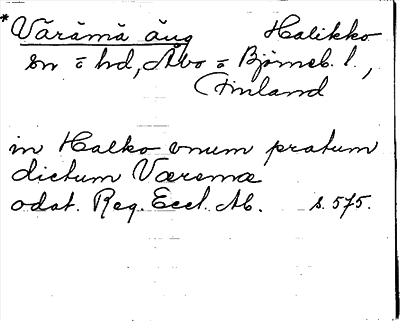 *Värämä äng Halikko
sn o hd, Åbo o Björneb. l.,
Finland
in Halko vnum pratum
dictumVæremæ
odat. Reg. Eccl. Ab. s. 575.